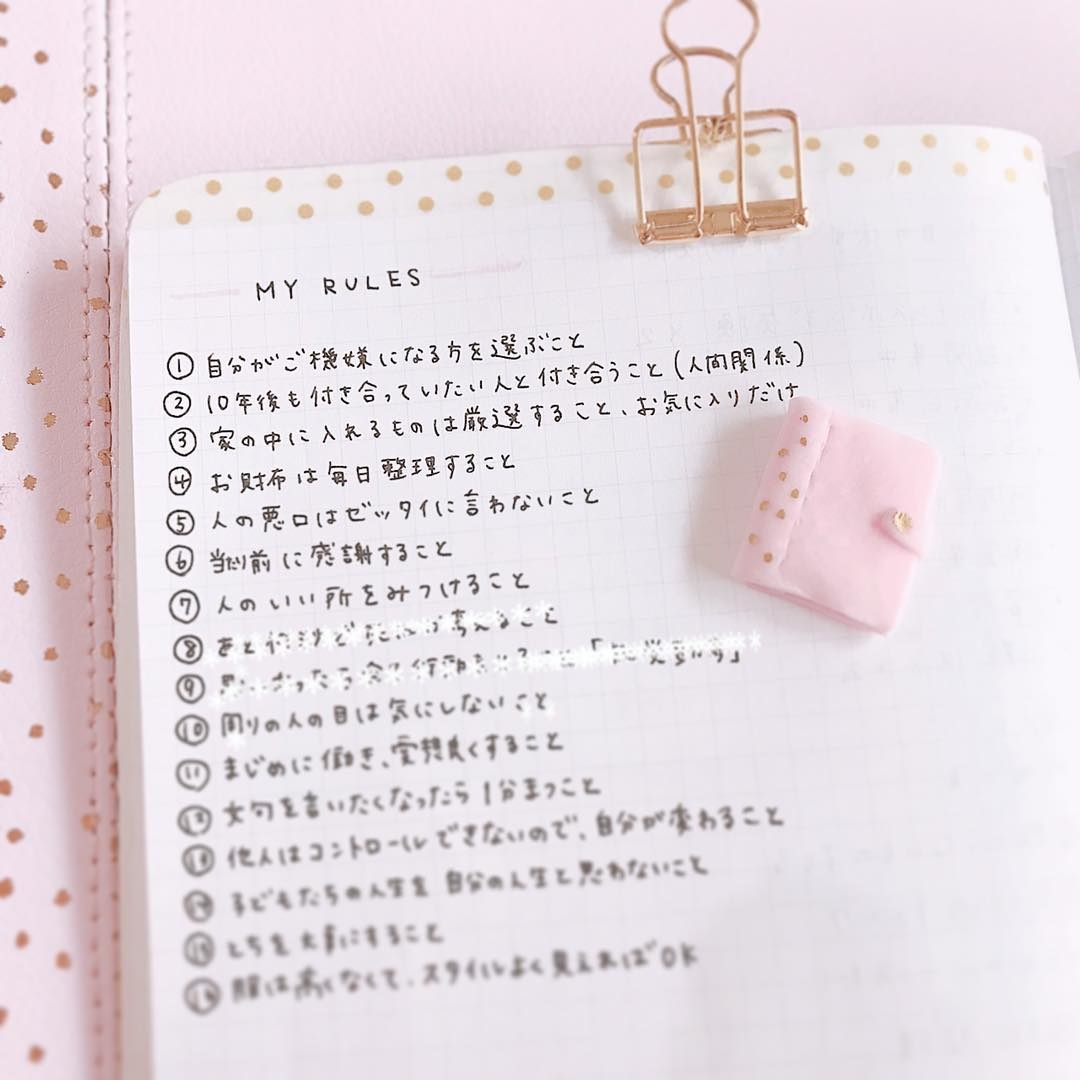 MY RULES
① 自分がご機嫌になる方を選ぶこと
② 10年後も付き合っていたい人と付き合うこと(人間関係)
③ 家の中に入れるものは厳選すること、お気に入りだけ
④ お財布は毎日整理すること
⑤ 人の悪口はゼッタイに言わないこと
⑥ 当り前に感謝すること
⑦ 人のいい所をみつけること
⑧ 考えること
⑨
⑩ 周りの人の目は気にしないこと
⑪ まじめに働き、愛想良くすること
⑫ 文句を言いたくなったら1分まつこと
⑬ 他人はコントロールできないので、自分が変わること
⑭ 子どもたちの人生を自分の人生と思わないこと
⑮ を大事にすること
⑯ 服は高くなくて、スタイルよく見えればOK